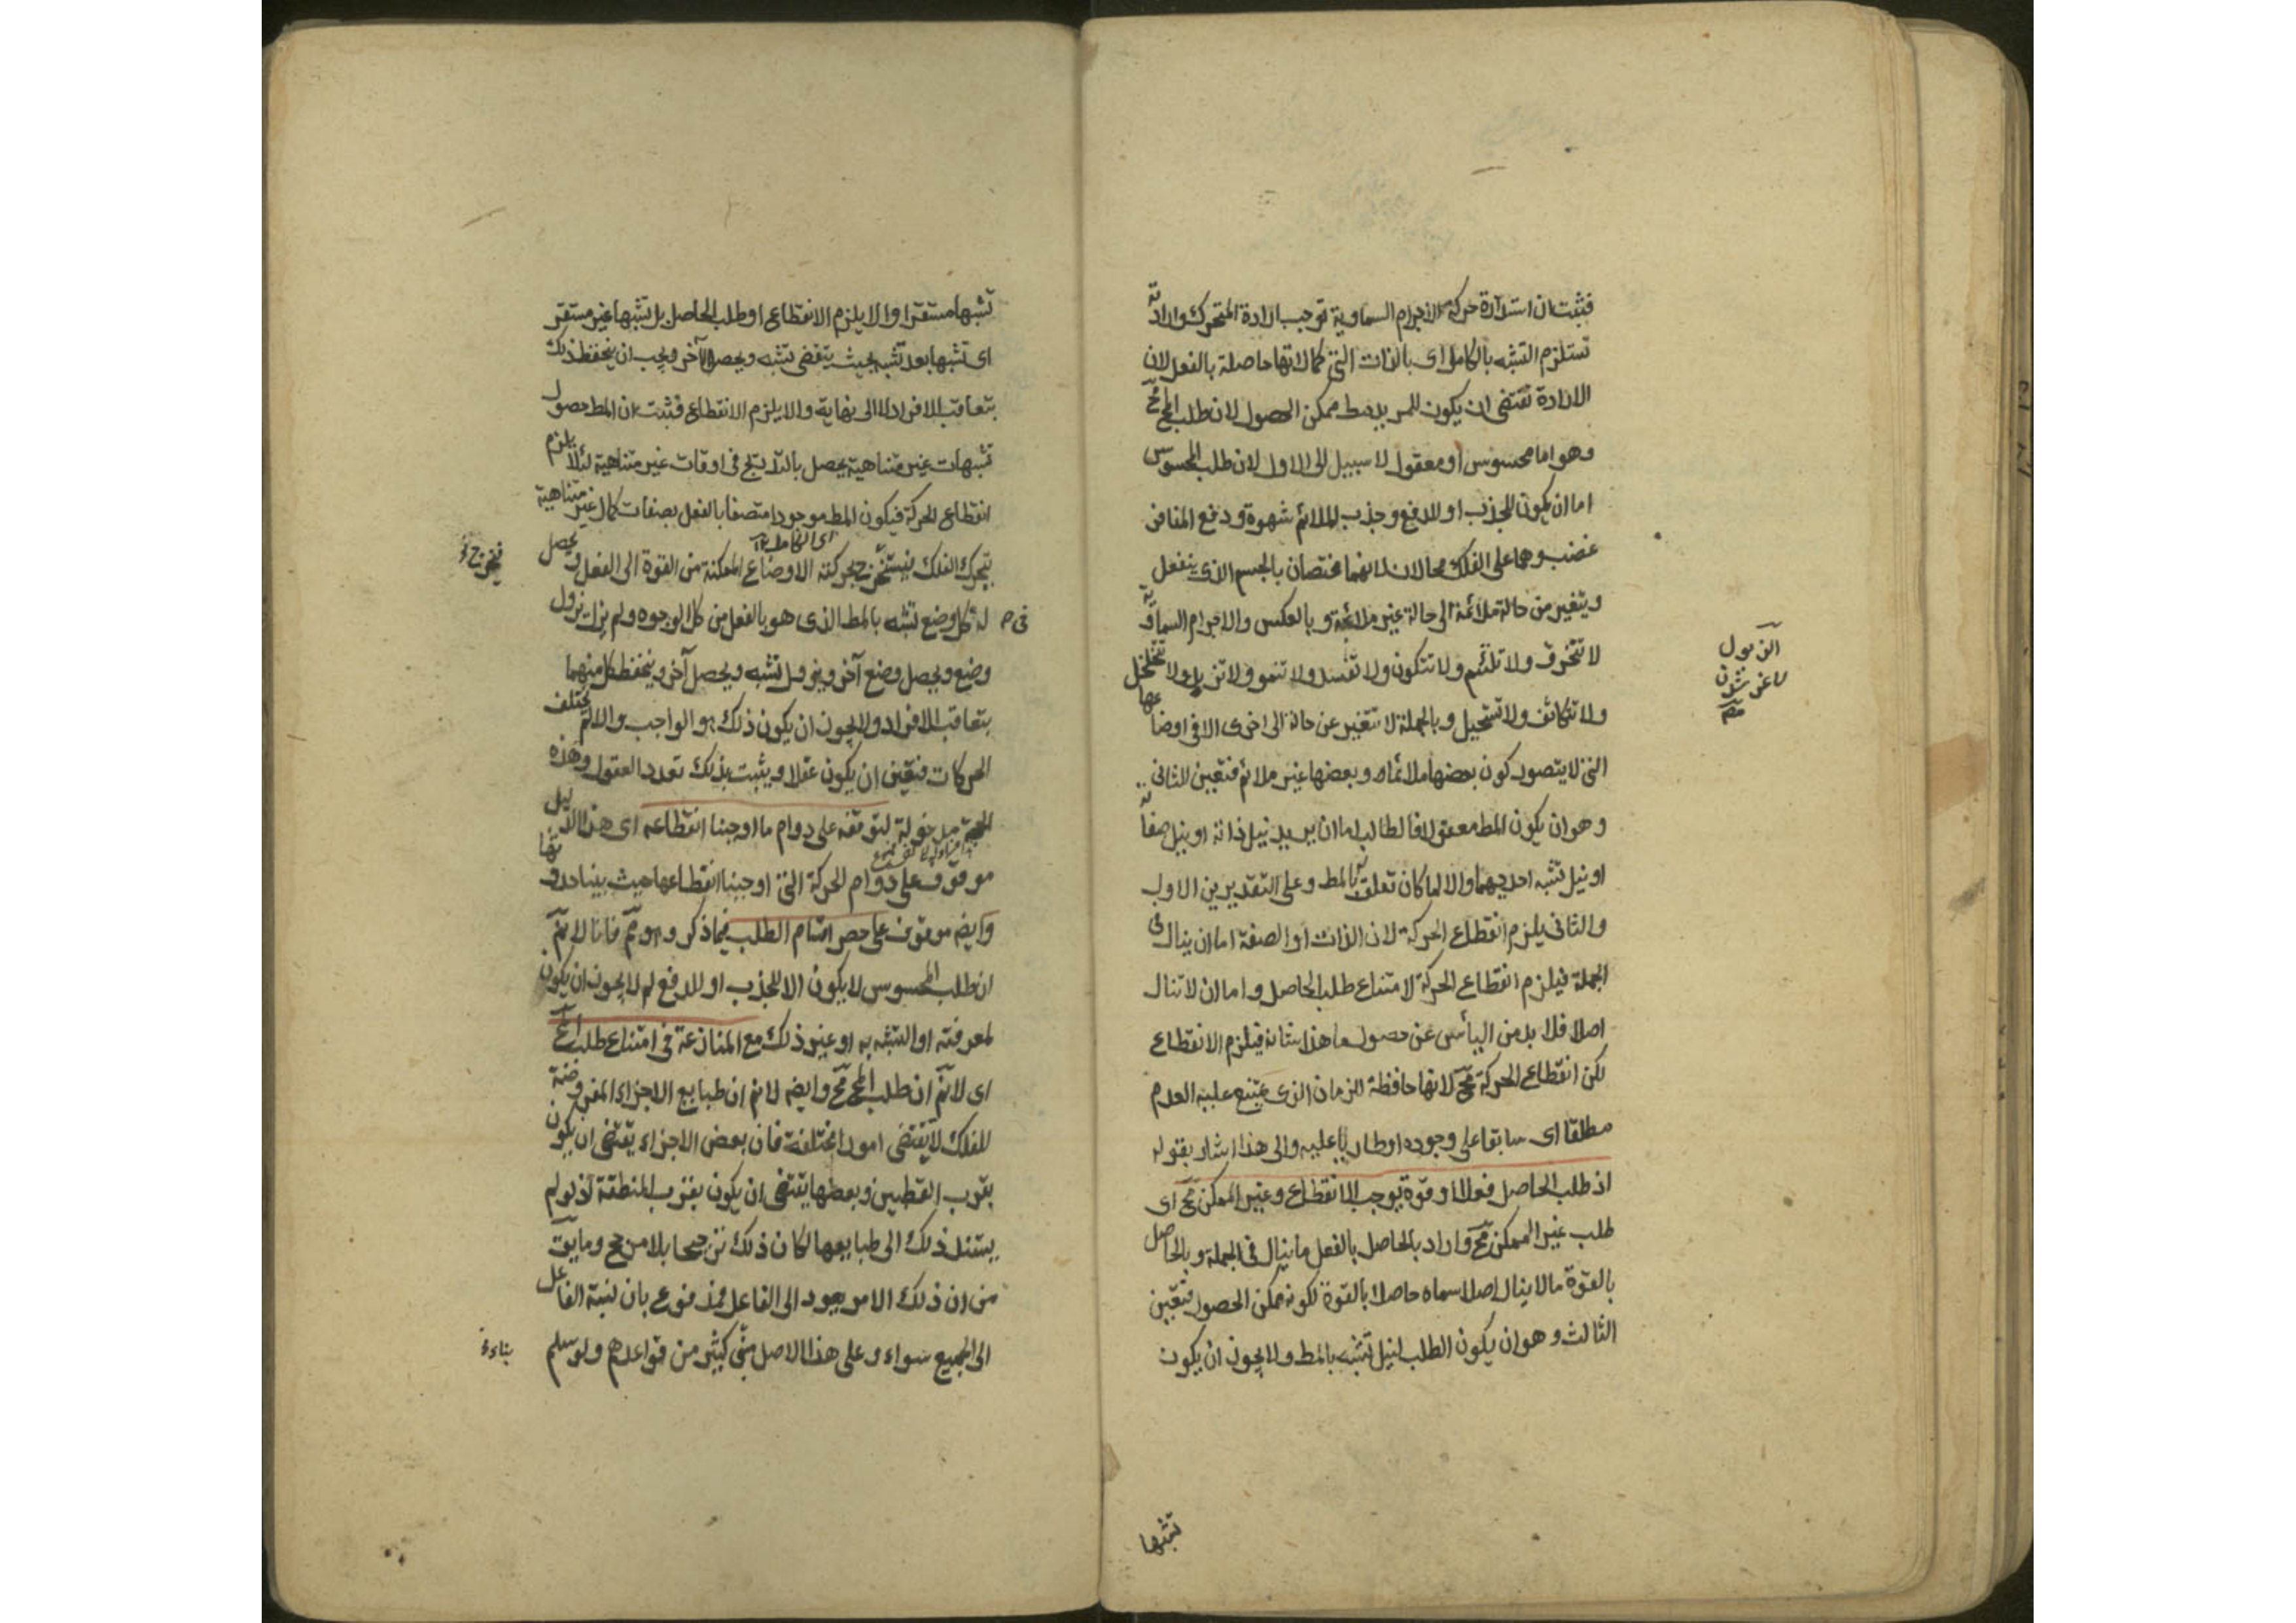 فثبت ان استدارة حركة الاجرام السماوية توجب ارادة المتحرك وارادته
تستلزم التشبه بالكامل اى بالذات التى كمالاتها حاصلة بالفعل لان
الارادة تقتضى ان يكون للمريد مط ممكن الحصول لان طلب المح مح
وهو اما محسوس او معقول لا سبيل الى الاول لان طلب المحسوس
اما ان يكون للجذب او للدفع وجذب الملائم شهوة ودفع المنافر
غضب وهما على الفلك محالان لانهما مختصان بالجسم الذى ينفعل
ويتغير من حالة ملائمة الى حالة غير ملائمة وبالعكس والاجرام السماوية
لا تنخرق ولا تلتئم ولا تتكون ولا تفسد ولا تنمو ولا تزبل ولا تتخلخل
ولا تتكاثف ولا تستحيل وبالجملة لا تتغير عن حالة الى اخرى الا فى اوضاعها
التى لا يتصور كون بعضها ملائما له وبعضها غير ملائم فتعين الثانى
وهو ان يكون المط معقولا فالطالب اما ان يريد نيل ذاته او نيل صفاته
او نيل تشبه احديهما والا لما كان تعلق له بالمط وعلى التقديرين الاول
والثانى يلزم انقطاع الحركة لان الذات او الصفة اما ان ينال فى
الجملة فيلزم انقطاع الحركة لامتناع طلب الحاصل واما ان لا تنال
اصلا فلا بد من اليأس عن حصول ما هذا شانه فيلزم الانقطاع
لكن انقطاع الحركة مح لانها حافظة للزمان الذى يمتنع عليه العدم
مطلقا اى سابقا على وجوده او طاريا عليه والى هذا اشار بقوله
اذ طلب الحاصل فعلا او قوة يوجب الانقطاع وغير الممكن مح اى
طلب غير الممكن مح واراد بالحاصل بالفعل ما ينال فى الجملة وبالحاصل
بالقوة ما لا ينال اصلا سماه حاصلا بالقوة لكونه ممكن الحصول فتعين
الثالث وهو ان يكون الطلب لنيل تشبه بالمط ولا يجوز ان يكون
تشبها
تشبها مستقرا والا يلزم الانقطاع او طلب الحاصل بل تشبها غير مستقر
اى تشبها بعد تشبه بحيث ينقضى تشبه ويحصل آخر ويجب ان ينحفظ ذلك
بتعاقب الافراد لا الى نهاية والا يلزم الانقطاع فثبت ان المط حصول
تشبهات غير متناهية يحصل بالتدريج فى اوقات غير متناهية لئلا يلزم
انقطاع الحركة فيكون المط موجودا متصفا بالفعل بصفات كمال غير متناهية
يتحرك الفلك فيستخرج بحركته الاوضاع الممكنة من القوة الى الفعل ويحصل
له فى كل وضع تشبه بالمط الذى هو بالفعل من كل الوجوه ولم يزل يزول
وضع ويحصل وضع آخر ويزول تشبه ويحصل آخر وينحفظ كل منهما
بتعاقب الافراد ولا يجوز ان يكون ذلك هو الواجب والا لم يختلف
الحركات فتعين ان يكون عقلا ويثبت بذلك تعدد العقول وهذه
الحجة مدخولة لتوقفه على دوام ما اوجبنا انقطاعه اى هذا الدليل
موقوف على دوام الحركة التى اوجبنا انقطاعها حيث بينا حدوثها
وايضه موقوف على حصر اقسام الطلب فيما ذكر وهو مم فانا لا نم
ان طلب المحسوس لا يكون الا للجذب او للدفع لم لا يجوز ان يكون
لمعرفته او التشبه به او غير ذلك مع المنازعة فى امتناع طلب المح
اى لا نم ان طلب المح مح وايضه لا نم ان طبايع الاجزاء المفروضة
للفلك لا تقتضى امورا مختلفة فان بعض الاجزاء يقتضى ان يكون
بقرب القطبين وبعضها يقتضى ان يكون بقرب المنطقة اذ لو لم
يستند ذلك الى طبايعها لكان ذلك ترجيحا بلا مرجح وما يق
من ان ذلك الامر يعود الى الفاعل فمدفوع بان نسبة الفاعل
الى الجميع سواء وعلى هذا الاصل مبنى كثير من قواعدهم ولو سلم